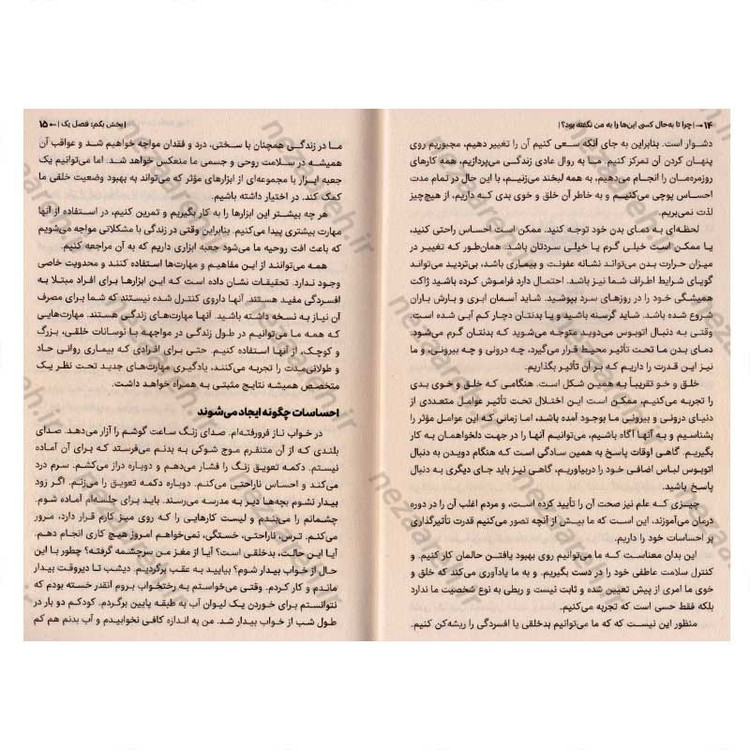 ۱۴ → | چرا تا به‌حال کسی این‌ها را به من نگفته بود؟ |
دشوار است. بنابراین به جای آنکه سعی کنیم آن را تغییر دهیم، مجبوریم روی
پنهان کردن آن تمرکز کنیم. ما به روال عادی زندگی می‌پردازیم، همه کارهای
روزمره‌مان را انجام می‌دهیم، به همه لبخند می‌زنیم، با این حال در تمام مدت
احساس پوچی می‌کنیم و به خاطر آن خلق و خوی بدی که داریم، از هیچ‌چیز
لذت نمی‌بریم.
لحظه‌ای به دمای بدن خود توجه کنید. ممکن است احساس راحتی کنید،
یا ممکن است خیلی گرم یا خیلی سردتان باشد. همان‌طور که تغییر در
میزان حرارت بدن می‌تواند نشانه عفونت و بیماری باشد، بی‌تردید می‌تواند
گویای شرایط اطراف شما نیز باشد. احتمال دارد فراموش کرده باشید ژاکت
همیشگی خود را در روزهای سرد بپوشید. شاید آسمان ابری و بارش باران
شروع شده باشد. شاید گرسنه باشید و یا بدنتان دچار کم آبی شده است.
وقتی به دنبال اتوبوس می‌دوید متوجه می‌شوید که بدنتان گرم می‌شود.
دمای بدن ما تحت تأثیر محیط قرار می‌گیرد، چه درونی و چه بیرونی، و ما
نیز این قدرت را داریم که بر آن تأثیر بگذاریم.
خلق و خو تقریباً به همین شکل است. هنگامی که خلق و خوی بدی
را تجربه می‌کنیم، ممکن است این اختلال تحت تأثیر عوامل متعددی از
دنیای درونی و بیرونی ما بوجود آمده باشد، اما زمانی که این عوامل مؤثر را
بشناسیم و به آنها آگاه باشیم، می‌توانیم آنها را در جهت دلخواهمان به کار
بگیریم. گاهی اوقات پاسخ به همین سادگی است که هنگام دویدن به دنبال
اتوبوس لباس اضافی خود را دربیاوریم، گاهی نیز باید جای دیگری به دنبال
پاسخ باشید.
چیزی که علم نیز صحت آن را تأیید کرده است، و مردم اغلب آن را در دوره
درمان می‌آموزند، این است که ما بیش از آنچه تصور می‌کنیم قدرت تأثیرگذاری
بر احساسات خود را داریم.
این بدان معناست که ما می‌توانیم روی بهبود یافتن حالمان کار کنیم. و
کنترل سلامت عاطفی خود را در دست بگیریم. و به ما یادآوری می‌کند که خلق و
خوی ما امری از پیش تعیین شده و ثابت نیست و ربطی به نوع شخصیت ما ندارد
بلکه فقط حسی است که تجربه می‌کنیم.
منظور این نیست که که ما می‌توانیم بدخلقی یا افسردگی را ریشه‌کن کنیم.
| بخش یکم؛ فصل یک | ← ۱۵
ما در زندگی همچنان با سختی، درد و فقدان مواجه خواهیم شد و عواقب آن
همیشه در سلامت روحی و جسمی ما منعکس خواهد شد. اما می‌توانیم یک
جعبه ابزار با مجموعه‌ای از ابزارهای مؤثر که می‌تواند به بهبود وضعیت خلقی ما
کمک کند. در اختیار داشته باشیم.
هر چه بیشتر این ابزارها را به کار بگیریم و تمرین کنیم، در استفاده از آنها
مهارت بیشتری پیدا می‌کنیم. بنابراین وقتی در زندگی با مشکلاتی مواجه می‌شویم
که باعث افت روحیه ما می‌شود جعبه ابزاری داریم که به آن مراجعه کنیم.
همه می‌توانند از این مفاهیم و مهارت‌ها استفاده کنند و محدویت خاصی
وجود ندارد. تحقیقات نشان داده است که این ابزارها برای افراد مبتلا به
افسردگی مفید هستند. آنها داروی کنترل شده نیستند که شما برای مصرف
آن نیاز به نسخه داشته باشید. آنها مهارت‌های زندگی هستند. مهارت‌هایی
که همه ما می‌توانیم در طول زندگی در مواجهه با نوسانات خلقی، بزرگ
و کوچک، از آنها استفاده کنیم. حتی برای افرادی که بیماری روانی حاد
و طولانی‌مدت را تجربه می‌کنند، یادگیری مهارت‌های جدید تحت نظر یک
متخصص همیشه نتایج مثبتی به همراه خواهد داشت.
احساسات چگونه ایجاد می‌شوند
در خواب ناز فرورفته‌ام. صدای زنگ ساعت گوشم را آزار می‌دهد. صدای
بلندی که از آن متنفرم موج شوکی به بدنم می‌فرستد که برای آن آماده
نیستم. دکمه تعویق زنگ را فشار می‌دهم و دوباره دراز می‌کشم. سرم درد
می‌کند و احساس ناراحتی می‌کنم. دوباره دکمه تعویق را می‌زنم. اگر زود
بیدار نشوم بچه‌ها دیر به مدرسه می‌رسند. باید برای جلسه‌ام آماده شوم.
چشمانم را می‌بندم و لیست کارهایی را که روی میز کارم قرار دارد، مرور
می‌کنم. ترس، ناراحتی، خستگی، نمی‌خواهم امروز هیچ کاری انجام دهم.
آیا این حالت، بدخلقی است؟ آیا از مغز من سرچشمه گرفته؟ چطور با این
حال از خواب بیدار شوم؟ بیایید به عقب برگردیم. دیشب تا دیروقت بیدار
ماندم و کار کردم. وقتی می‌خواستم به رختخواب بروم آنقدر خسته بودم که
نتوانستم برای خوردن یک لیوان آب به طبقه پایین برگردم. کودکم دو بار در
طول شب از خواب بیدار شد. من به اندازه کافی نخوابیدم و آب بدنم هم کم
nezaareh.ir